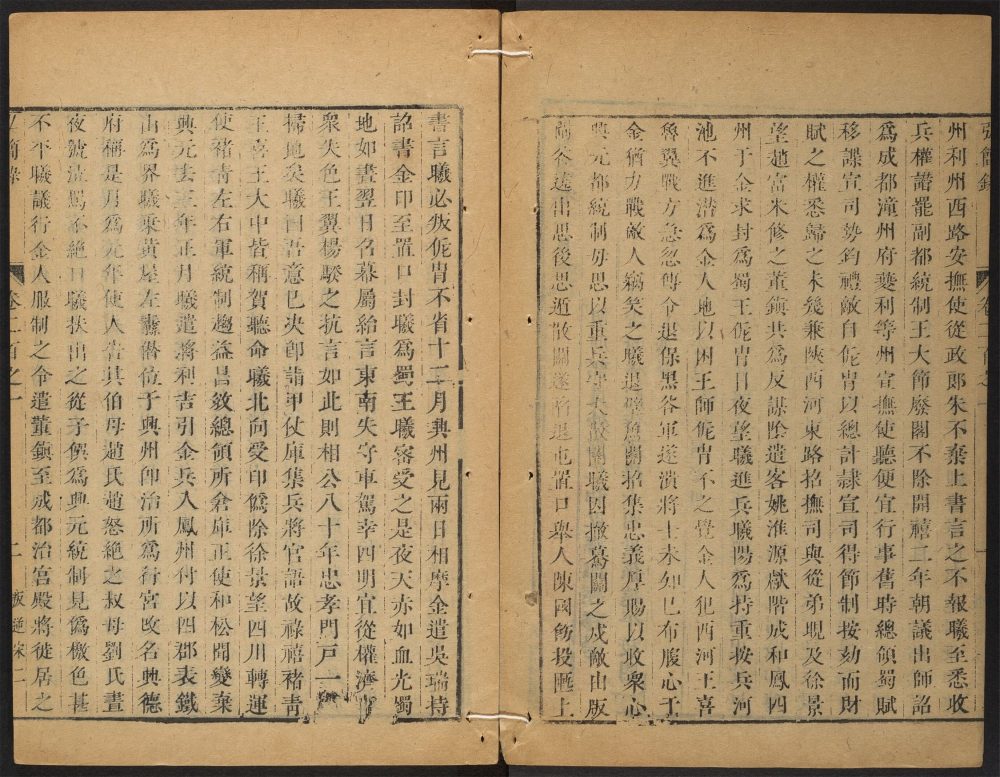 弘簡錄
卷二百之一
一
州利州西路安撫使從政郎朱不棄上書言之不報曦至悉收
兵權譖罷副都統制王大節廢閣不除開禧二年朝議出師詔
爲成都潼州府夔利等州宣撫使聽便宜行事舊時總領蜀賦
移諜宣司勢鈞禮敵自侂冑以總計隸宣司得節制按劾而財
賦之權悉歸之未幾兼陝西河東路招撫司與從弟晛及徐景
望趙富米修之董鎭共爲反謀陰遣客姚淮源獻階成和鳳四
州于金求封爲蜀王侂冑日夜望曦進兵曦陽爲持重按兵河
池不進潛爲金人地以困王師侂冑不之覺金人犯西河王喜
魯翼戰方急忽傳令退保黑谷軍遂潰將士未如已布腹心于
金猶力戰敵人竊笑之曦退壁魚關招集忠義厚賜以收衆心
興元都統制毋思以重兵守大散關曦因撤蔦關之戍敵由版
谷遶出思後思遁散關遂陷退屯罝口舉人陳國飭投匭上
書言曦必叛侂冑不省十二月興州見兩日相摩金遣吳瑞持
詔書金印至罝口封曦爲蜀王曦密受之是夜天赤如血光燭
地如晝翌日名幕屬紿言東南失守車駕幸四明宜從權濟事
衆失色王翼楊騤之抗言如此則相公八十年忠孝門戶一
掃地矣曦曰吾意已決卽詣甲仗庫集兵將官語故祿禧褚靑
王喜王大中皆稱賀聽命曦北向受印僞除徐景望四川轉運
使褚靑左右軍統制趨益昌敓總領所倉庫正使和松聞變棄
興元去三年正月曦遣將利吉引金兵入鳳州付以四郡表鐵
山爲界曦乘黃屋左纛僭位于興州卽治所爲行宮改名興德
府稱是月爲元年使人告其伯母趙氏趙怒絶之叔母劉氏晝
夜號泣罵不絶口曦扶出之從子僎爲興元統制見僞檄色甚
不平曦議行金人服制之令遣董鎭至成都治宮殿將徙居之
弘簡錄
卷二百之一
二
叛逆宋二